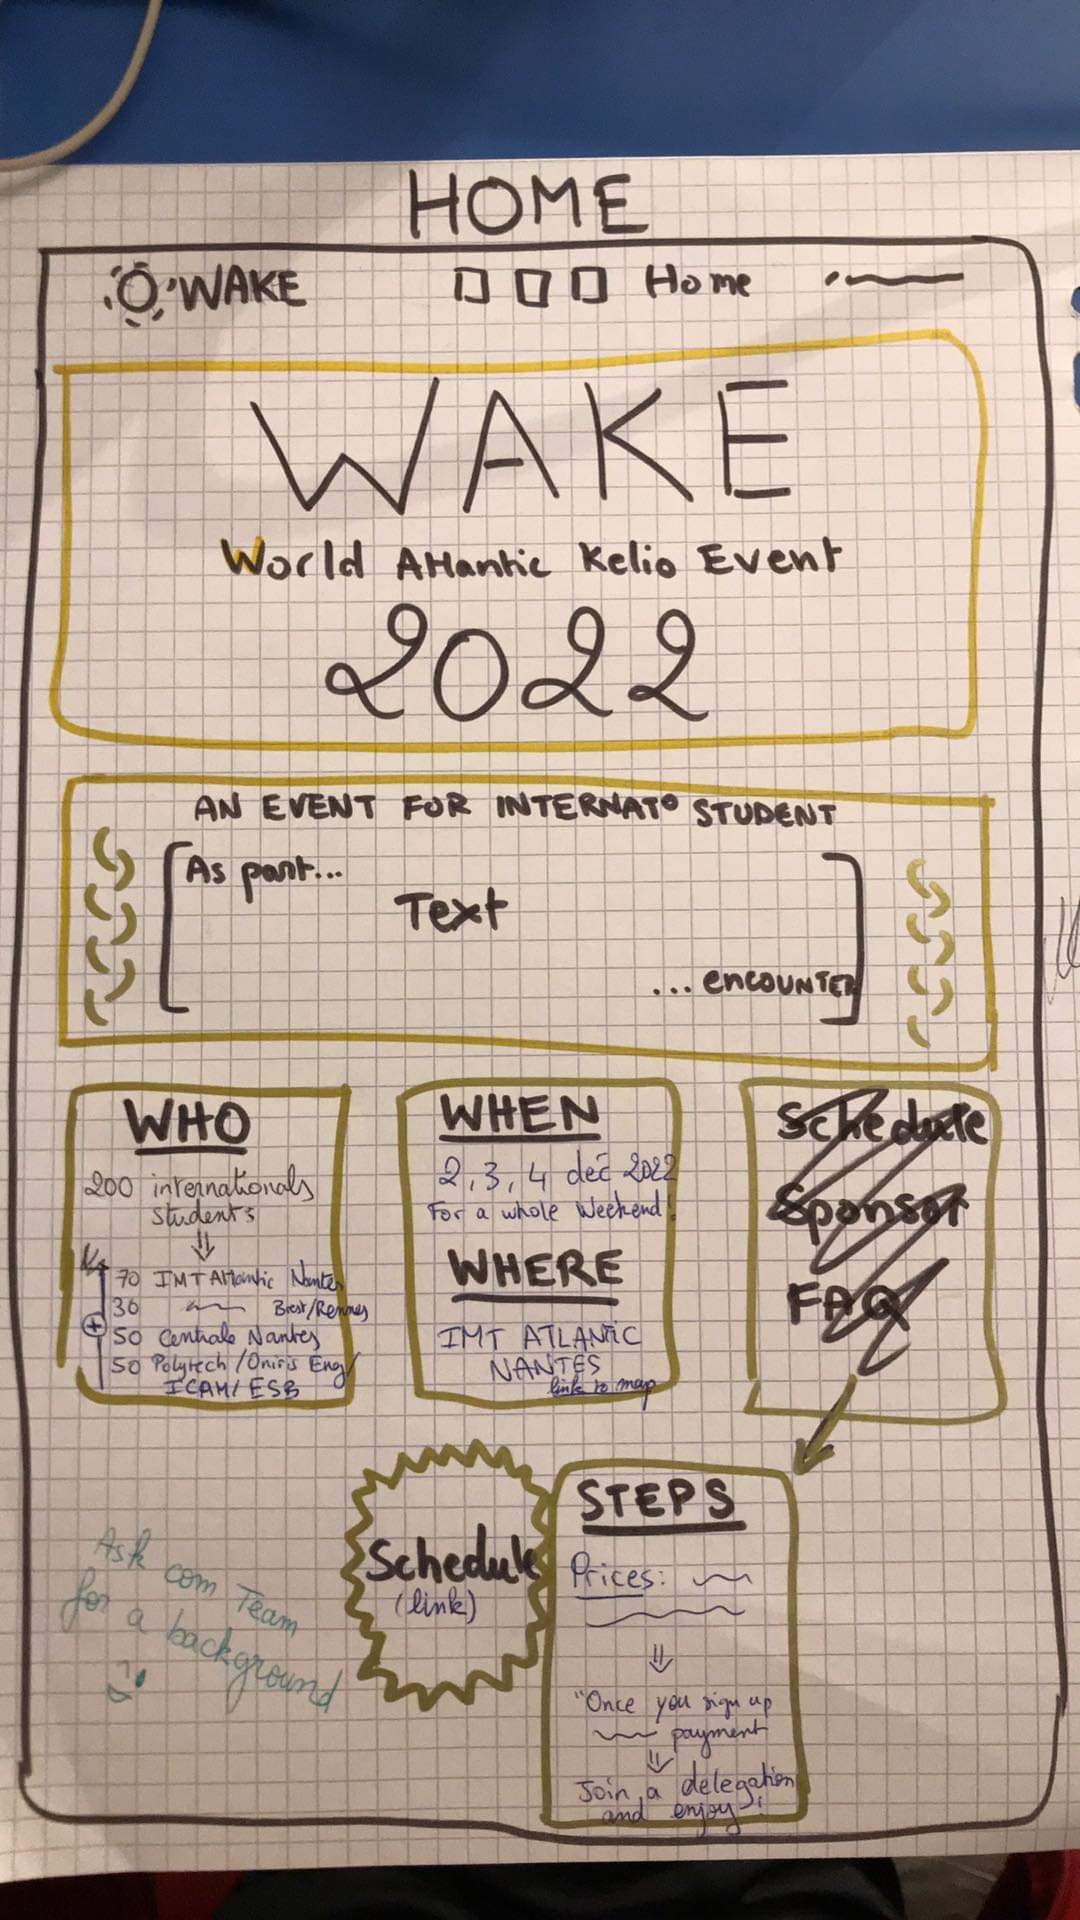 HOME
WAKE Home
WAKE
World Atlantic Kelio Event
2022
AN EVENT FOR INTERNAT° STUDENT
As part...
Text
... encounter
WHO
200 internationals
students
70 IMT Atlantic Nantes
30 Brest/Rennes
50 Centrale Nantes
50 Polytech/Oniris Eng/
ICAM/ESB
WHEN
2, 3, 4 dec 2022
For a whole Weekend!
WHERE
IMT ATLANTIC
NANTES
link to map
Schedule
Sponsor
FAQ
Schedule
(link)
STEPS
Prices:
"Once you sign up
payment
Join a delegation
and enjoy!
Ask com Team
for a background